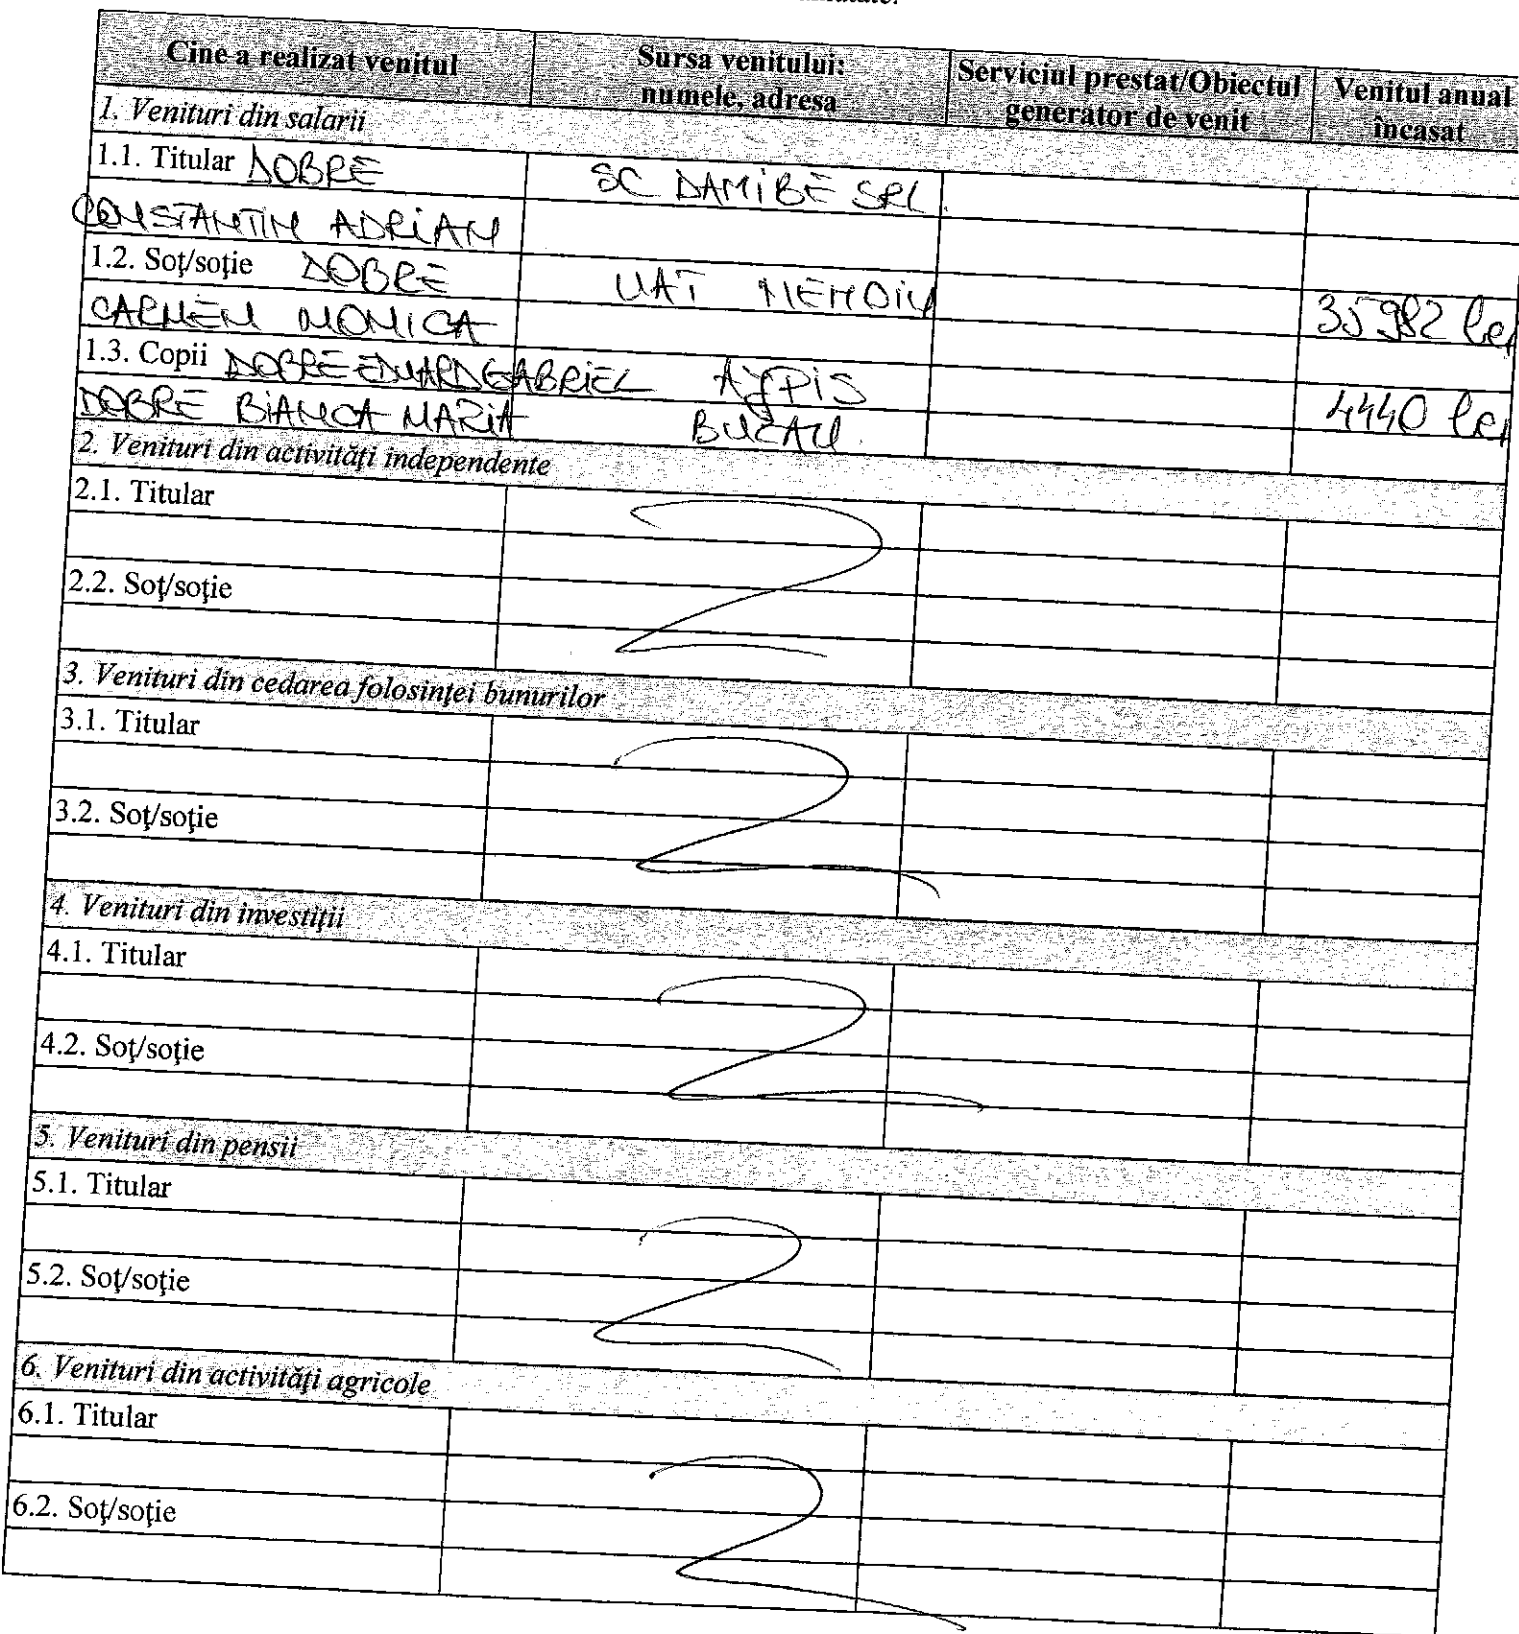 Cine a realizat venitul Sursa venitului: numele, adresa Serviciul prestat/Obiectul generator de venit Venitul anual încasat
1. Venituri din salarii
1.1. Titular DOBRE SC DAMIBE SRL.
CONSTANTIN ADRIAN
1.2. Soţ/soţie DOBRE UAT NEHOIU 35982 lei
CARMEN MONICA
1.3. Copii DOBRE EDUARD GABRIEL AJPIS 4440 lei
DOBRE BIANCA MARIA BUZAU.
2. Venituri din activităţi independente
2.1. Titular
2.2. Soţ/soţie
3. Venituri din cedarea folosinţei bunurilor
3.1. Titular
3.2. Soţ/soţie
4. Venituri din investiţii
4.1. Titular
4.2. Soţ/soţie
5. Venituri din pensii
5.1. Titular
5.2. Soţ/soţie
6. Venituri din activităţi agricole
6.1. Titular
6.2. Soţ/soţie